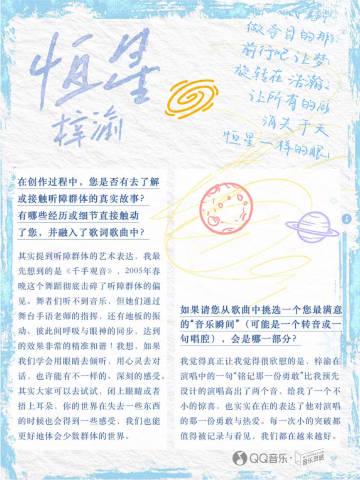 恒星
梓渝
做夺目的那
前行吧 让梦
旋转在浩瀚
让所有的
消失于天
恒星一样的眼
在创作过程中，您是否有去了解
或接触听障群体的真实故事？
有哪些经历或细节直接触动
了您，并融入了歌词歌曲中？
其实提到听障群体的艺术表达，我最
先想到的是《千手观音》，2005年春
晚这个舞蹈彻底击碎了听障群体的偏
见。舞者们听不到音乐，但她们通过
舞台手语老师的指挥，还有地板的振
动、彼此间呼吸与眼神的同步，达到
的效果非常的精准和谐！我想，如果
我们学会用眼睛去倾听，用心灵去对
话，也许能有不一样的、深刻的感受。
其实大家可以去试试，闭上眼睛或者
捂上耳朵，你的世界在失去一些东西
的时候也会得到一些感受，我们也能
更好地体会少数群体的世界。
如果请您从歌曲中挑选一个您最满意
的“音乐瞬间”（可能是一个转音或一
句唱腔），会是哪一部分？
我觉得真正让我觉得很欣慰的是，梓渝在
演唱中的一句“铭记那一份勇敢”比我预先
设计的演唱高出了两个音，给我了一个不
小的惊喜，也实实在在的表达了他对演唱
的那一份勇敢与热爱。每一次小的突破都
值得被记录与看见，我们都在越来越好。
QQ音乐·